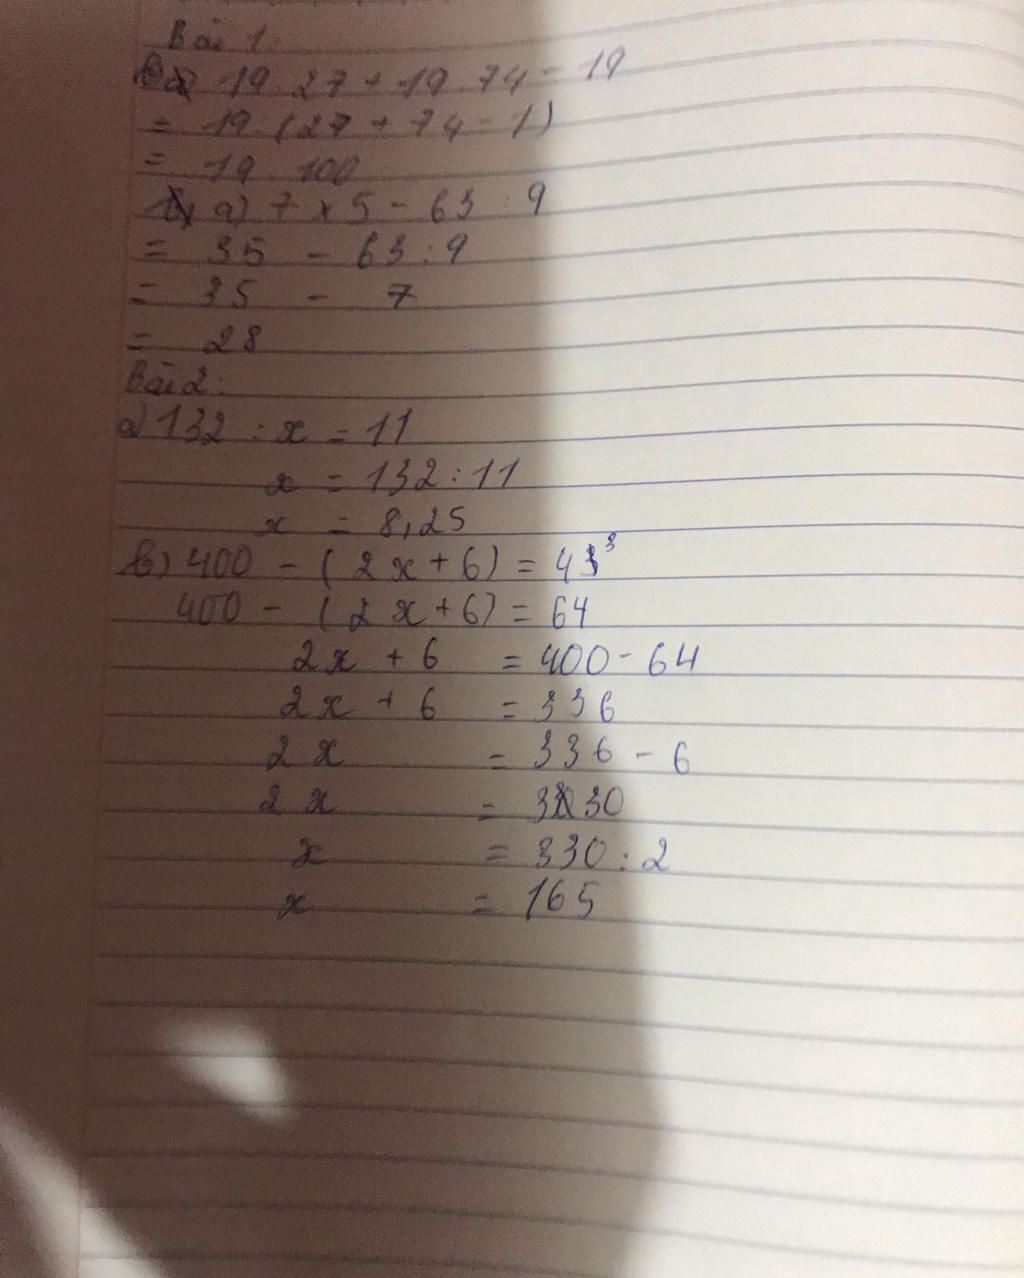 Bài 1:
b) 19.27 + 19.74 - 19
= 19.(27 + 74 - 1)
= 19.100
a) 7 x 5 - 63 : 9
= 35 - 63 : 9
= 35 - 7
= 28
Bài 2:
a) 132 : x = 11
x = 132 : 11
x = 8,25
b) 400 - (2x + 6) = 4³
400 - (2x + 6) = 64
2x + 6 = 400 - 64
2x + 6 = 336
2x = 336 - 6
2x = 330
x = 330 : 2
x = 165